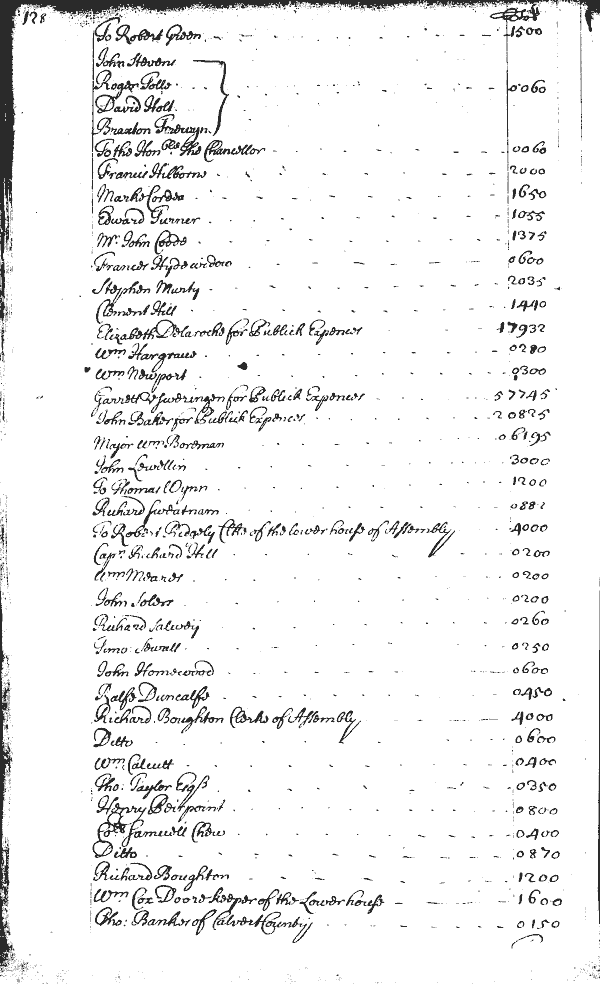 128
To Robert Green 1500
John Stevens
Roger Tolle 0060
David Holt
Braxton
To the Hon.ble the Chancellor 0060
Francis Hilborne 2000
Marke Cordea 1650
Edward Turner 1055
Mr John Coode 1375
Frances Hyde widow 0600
Stephen Murty 2035
Clement Hill 1440
Elizabeth Delaroche for Publick Expences 17932
Wm Hargrave 0280
Wm Newport 0300
Garrett Vsweringen for Publick Expences 57745
John Baker for Publick Expences 20825
Major Wm Boreman 06195
John Lewellin 3000
To Thomas Wynn 1200
Richard Sweatnam 0882
To Robert Ridgely Clke of the lower house of Assembly 4000
Capn Richard Hill 0200
Wm Meares 0200
John Solers 0200
Richard Salwey 0260
Timo: Sewall 0250
John Homewood 0600
Ralfe Duncalfe 0450
Richard Boughton Clerke of Assembly 4000
Ditto 0600
Wm Calvert 0400
Tho: Taylor Esqr 0350
Henry 0800
Samuell Chew 0400
Ditto 0870
Richard Boughton 1200
Wm Cox Doore keeper of the Lower house 1600
Tho: Bankes of Calvert County 0150